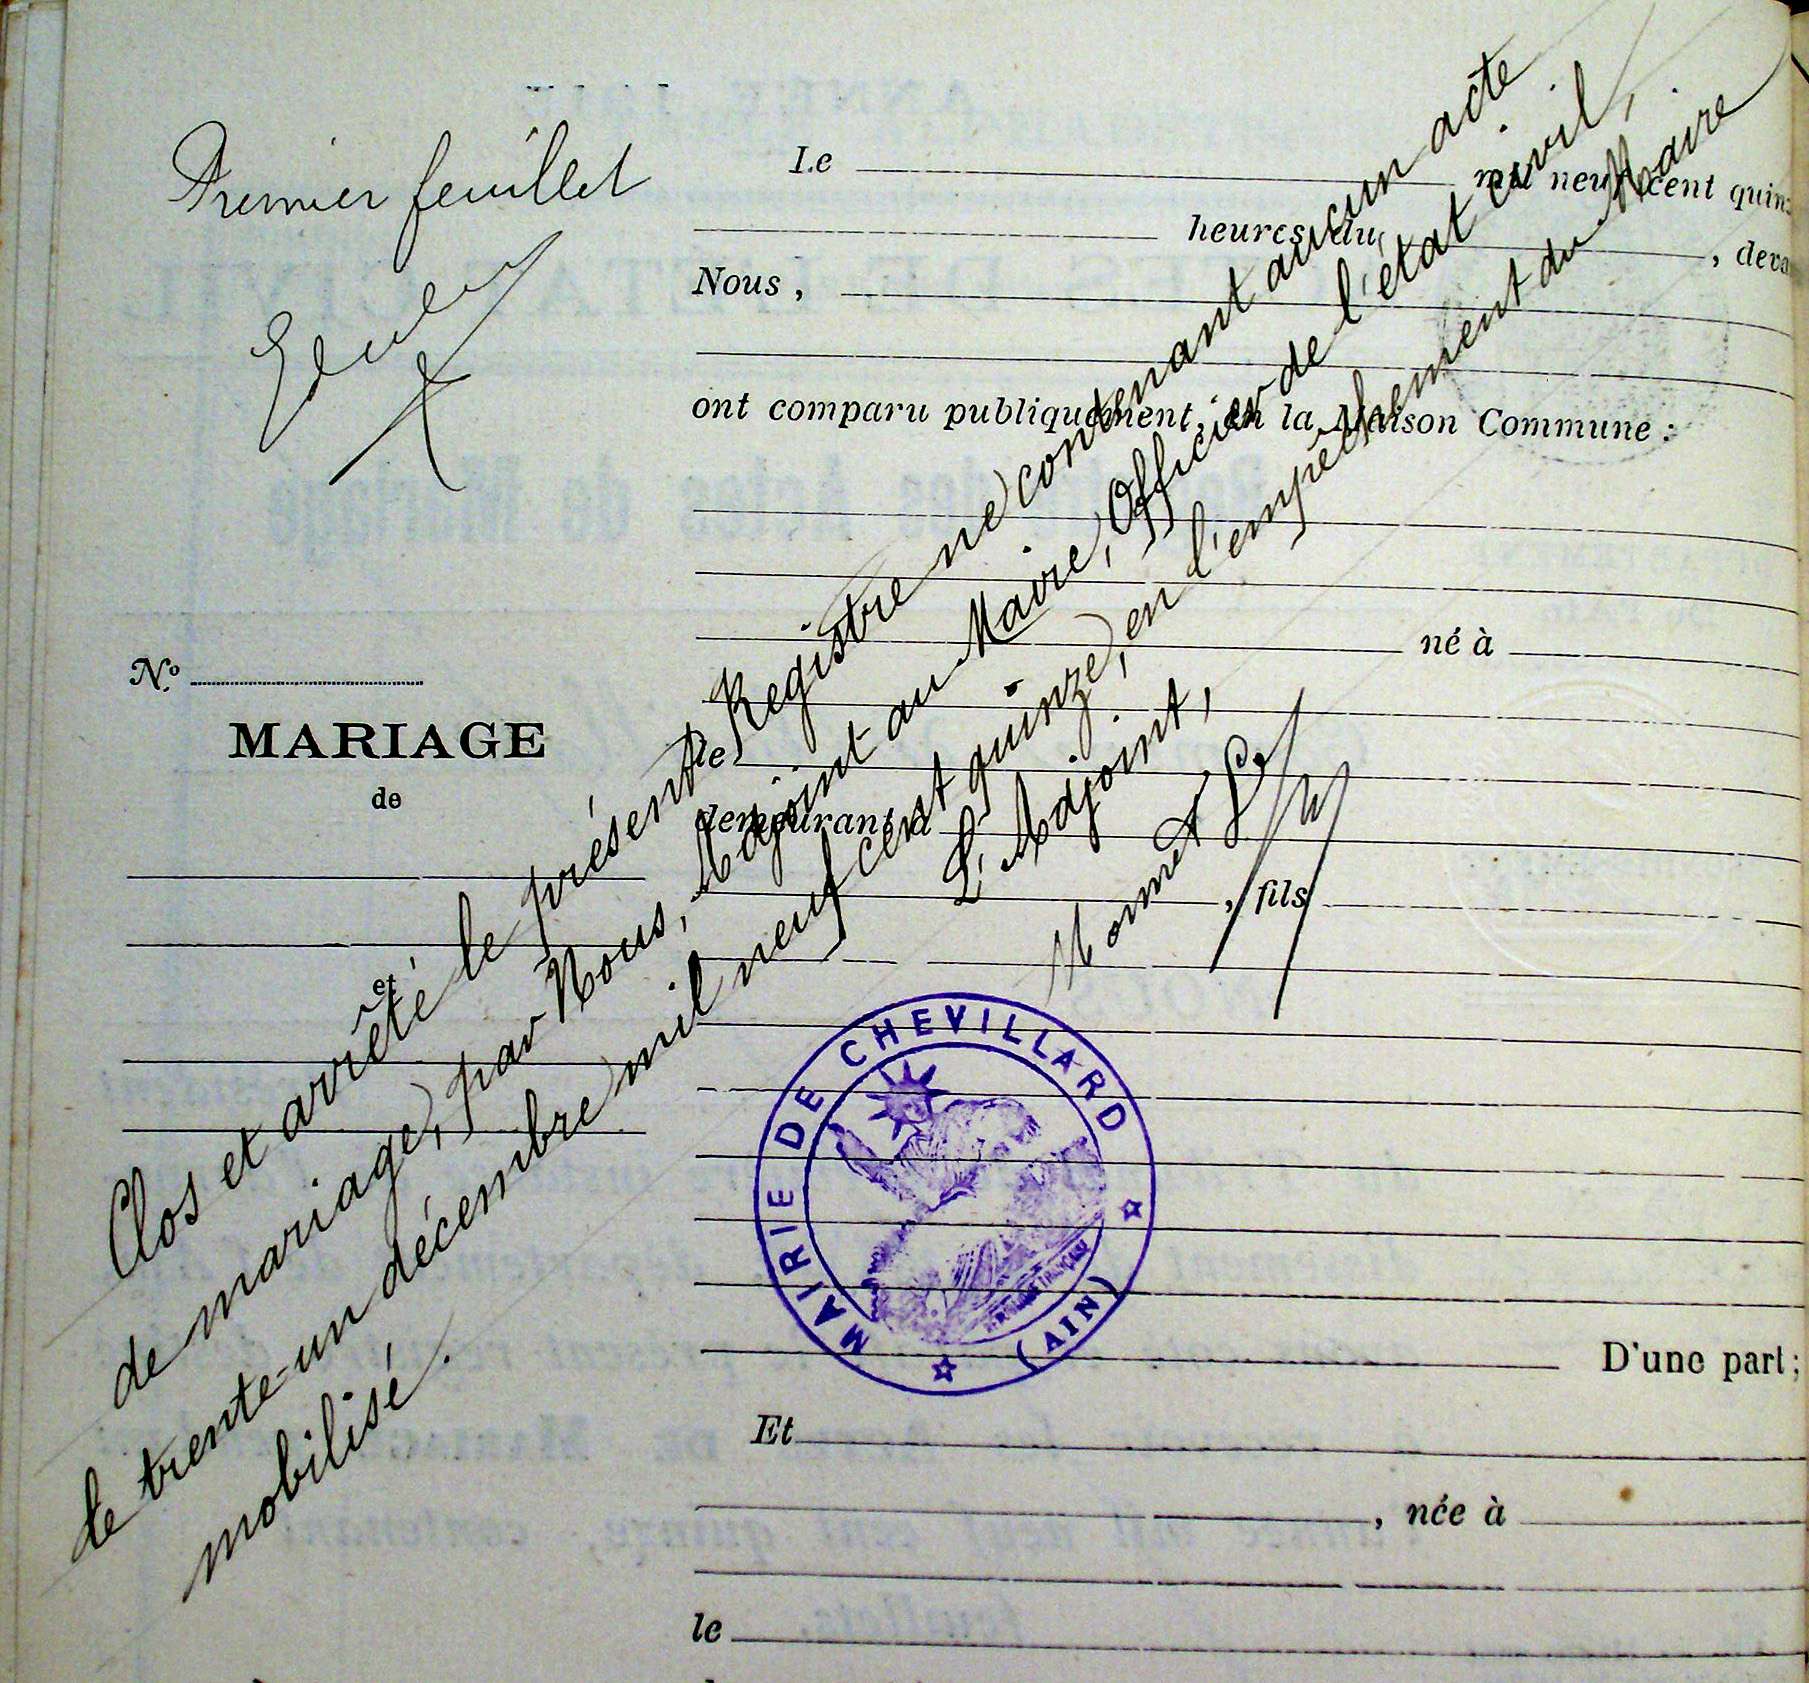 Premier feuillet
Le mil neuf cent quin
heures du , deva
Nous ,
ont comparu publiquement, en la Maison Commune :
né à
le
demeurant à
, fils
D'une part ;
Et
, née à
le
N.º
MARIAGE
de
et
Clos et arrêté le présent Registre ne contenant aucun acte
de mariage, par Nous, Adjoint au Maire, Officier de l'état civil,
le trente-un décembre mil neuf cent quinze, en l'empêchement du Maire
mobilisé.
L'Adjoint,
MAIRIE DE CHEVILLARD
(AIN)